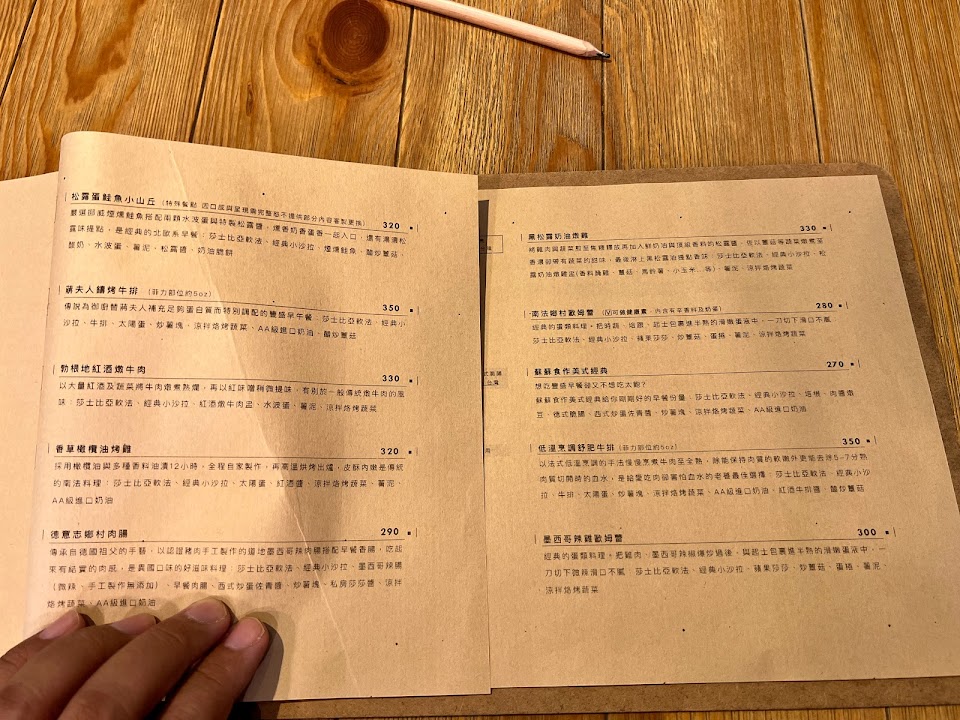 松露蛋鮭魚小山丘 (特殊餐點 因口感與呈現需完整恕不提供部分內容客製更換) 320
嚴選挪威煙燻鮭魚搭配兩顆水波蛋與特製松露醬,燻香奶香蛋香一起入口,還有濃濃松
露味提點,是經典的北歐系早餐:莎士比亞軟法、經典小沙拉、煙燻鮭魚、醋炒蘑菇、
酸奶、水波蛋、薯泥、松露醬、奶油脆餅
萌夫人鑄烤牛排 (菲力部位約5oz) 350
傳說為御廚替萌夫人補充足夠蛋白質而特別調配的豐盛早午餐:莎士比亞軟法、經典小
沙拉、牛排、太陽蛋、炒薯塊、涼拌烙烤蔬菜、AA級進口奶油、醋炒蘑菇
勃根地紅酒燉牛肉 330
以大量紅酒及蔬菜將牛肉燉煮熟爛,再以紅味噌稍微提味,有別於一般傳統燉牛肉的風
味:莎士比亞軟法、經典小沙拉、紅酒燉牛肉盅、水波蛋、薯泥、涼拌烙烤蔬菜
香草橄欖油烤雞 320
採用橄欖油與多種香料油漬12小時,全程自家製作,再高溫烘烤出爐,皮酥內嫩是傳統
的南法料理:莎士比亞軟法、經典小沙拉、太陽蛋、紅酒醬、涼拌烙烤蔬菜、薯泥、
AA級進口奶油
德意志鄉村肉腸 290
傳承自德國祖父的手藝,以認證豬肉手工製作的道地墨西哥辣肉腸搭配早餐香腸,吃起
來有結實的肉感,是異國口味的好滋味料理:莎士比亞軟法、經典小沙拉、墨西哥辣腸
(微辣、手工製作無添加)、早餐肉腸、西式炒蛋佐青醬、炒薯塊、私房莎莎醬、涼拌
烙烤蔬菜、AA級進口奶油
黑松露奶油燉雞 330
將雞肉與蔬菜煎至焦糖標放再加入鮮奶油與頂級香料的松露醬,佐以蘑菇等蔬菜燉煮至
香濃卻帶有蔬菜的甜味,最後淋上黑松露油提點香味:莎士比亞軟法、經典小沙拉、松
露奶油燉雞盅(香料醃雞、蘑菇、馬鈴薯、小玉米...等)、薯泥、涼拌烙烤蔬菜
南法鄉村歐姆蕾 (Ⓥ可做健康素,內含有辛香料及奶蛋) 280
經典的蛋類料理。把時蔬、培根、起士包裹進半熟的滑嫩蛋液中,一刀切下滑口不膩
莎士比亞軟法、經典小沙拉、蘋果莎莎、炒蘑菇、蛋捲、薯泥、涼拌烙烤蔬菜
蘇蘇食作美式經典 270
想吃豐盛早餐卻又不想吃太飽?
蘇蘇食作美式經典給你剛剛好的早餐份量:莎士比亞軟法、經典小沙拉、培根、肉醬燉
豆、德式脆腸、西式炒蛋佐青醬、炒薯塊、涼拌烙烤蔬菜、AA級進口奶油
低溫烹調紓肥牛排 (菲力部位約5oz) 350
以法式低溫烹調的手法慢慢烹煮牛肉至全熟,除能保持肉質的軟嫩外更能去除5-7分熟
肉質切開時的血水,是給愛吃肉卻害怕血水的老饕最佳選擇:莎士比亞軟法、經典小沙
拉、牛排、太陽蛋、炒薯塊、涼拌烙烤蔬菜、AA級進口奶油、紅酒牛排醬、醋炒蘑菇
墨西哥辣雞歐姆蕾 300
經典的蛋類料理。把雞肉、墨西哥辣椒爆炒過後,與起士包裹進半熟的滑嫩蛋液中,一
刀切下微辣滑口不膩:莎士比亞軟法、經典小沙拉、蘋果莎莎、炒蘑菇、蛋捲、薯泥
、涼拌烙烤蔬菜